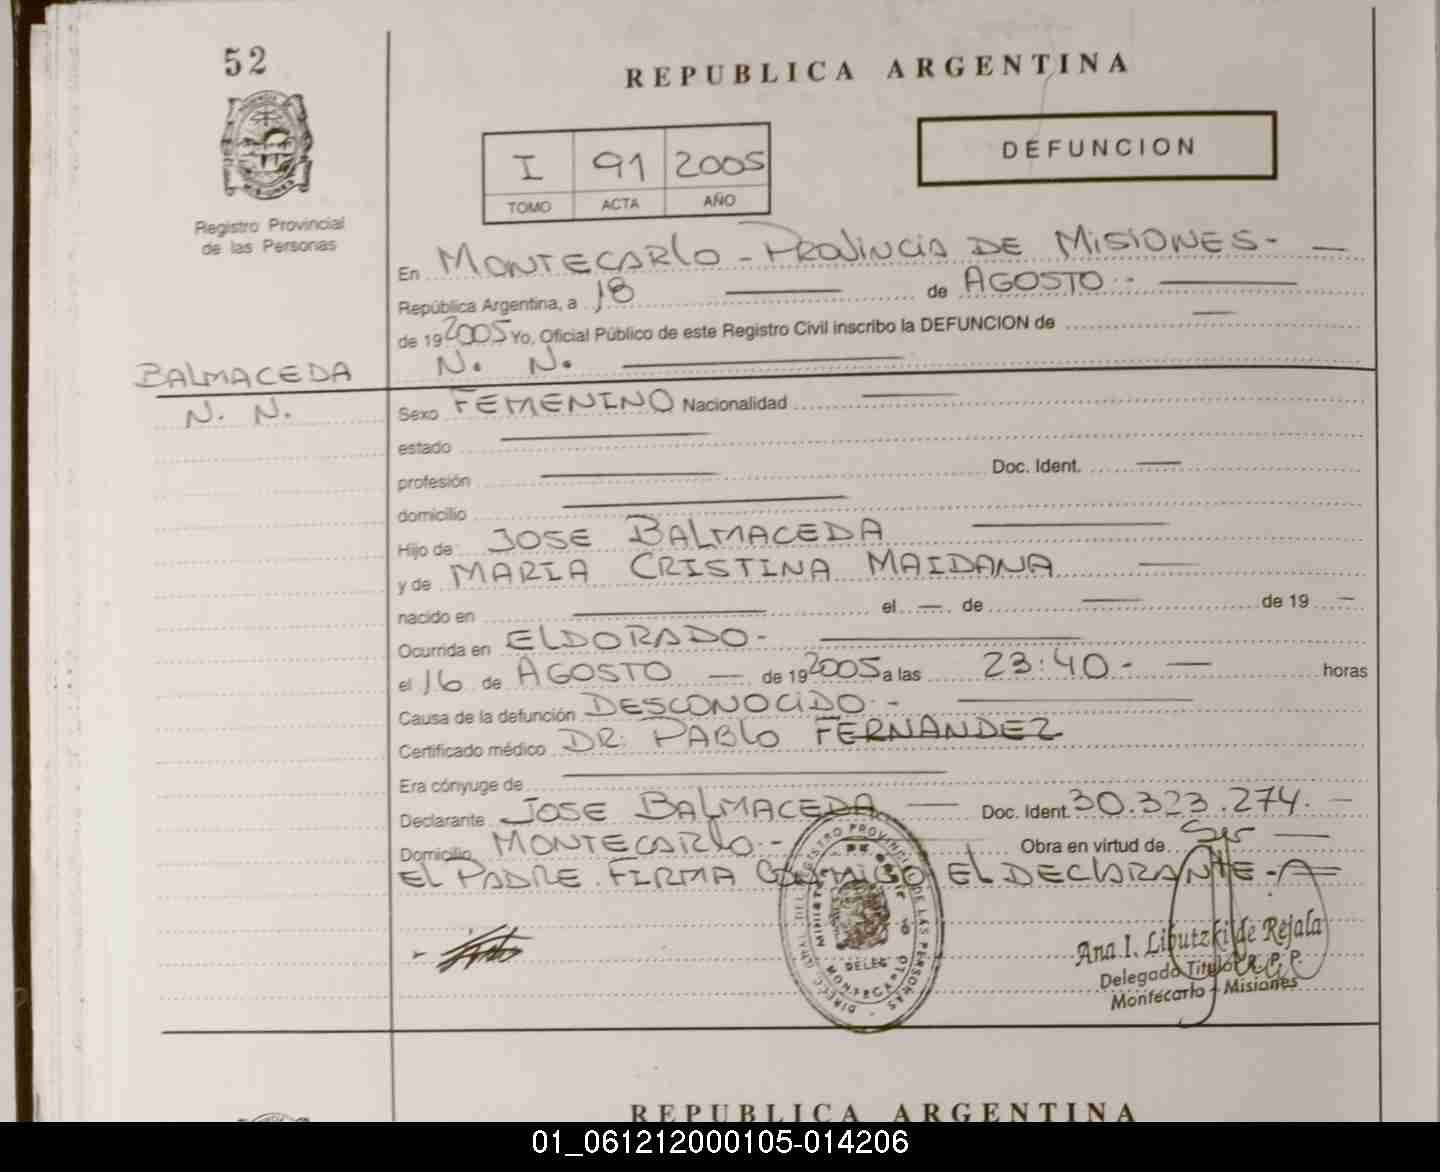 52
REPUBLICA ARGENTINA
DEFUNCION
I 91 2005
TOMO ACTA AÑO
Registro Provincial
de las Personas
En MONTECARLO - PROVINCIA DE MISIONES-
República Argentina, a 18 de AGOSTO-
de 19 2005 Yo, Oficial Público de este Registro Civil inscribo la DEFUNCION de
N. N.
BALMACEDA
N. N.
Sexo FEMENINO Nacionalidad
estado
profesión Doc. Ident.
domicilio
Hijo de JOSE BALMACEDA
y de MARIA CRISTINA MAIDANA
nacido en el de de 19
Ocurrida en ELDORADO-
el 16 de AGOSTO de 19 2005 a las 23:40- horas
Causa de la defunción DESCONOCIDO-
Certificado médico DR. PABLO FERNANDEZ
Era cónyuge de
Declarante JOSE BALMACEDA Doc. Ident. 30.323.274.
Domicilio MONTECARLO- Obra en virtud de Ser
EL PADRE. FIRMA CONMIGO EL DECLARANTE-
Ana I. Libutzki de Rejala
Delegado Titular R. P. P.
Montecarlo - Misiones
DELEG
MONTECARLO
REPUBLICA ARGENTINA
01_061212000105-014206